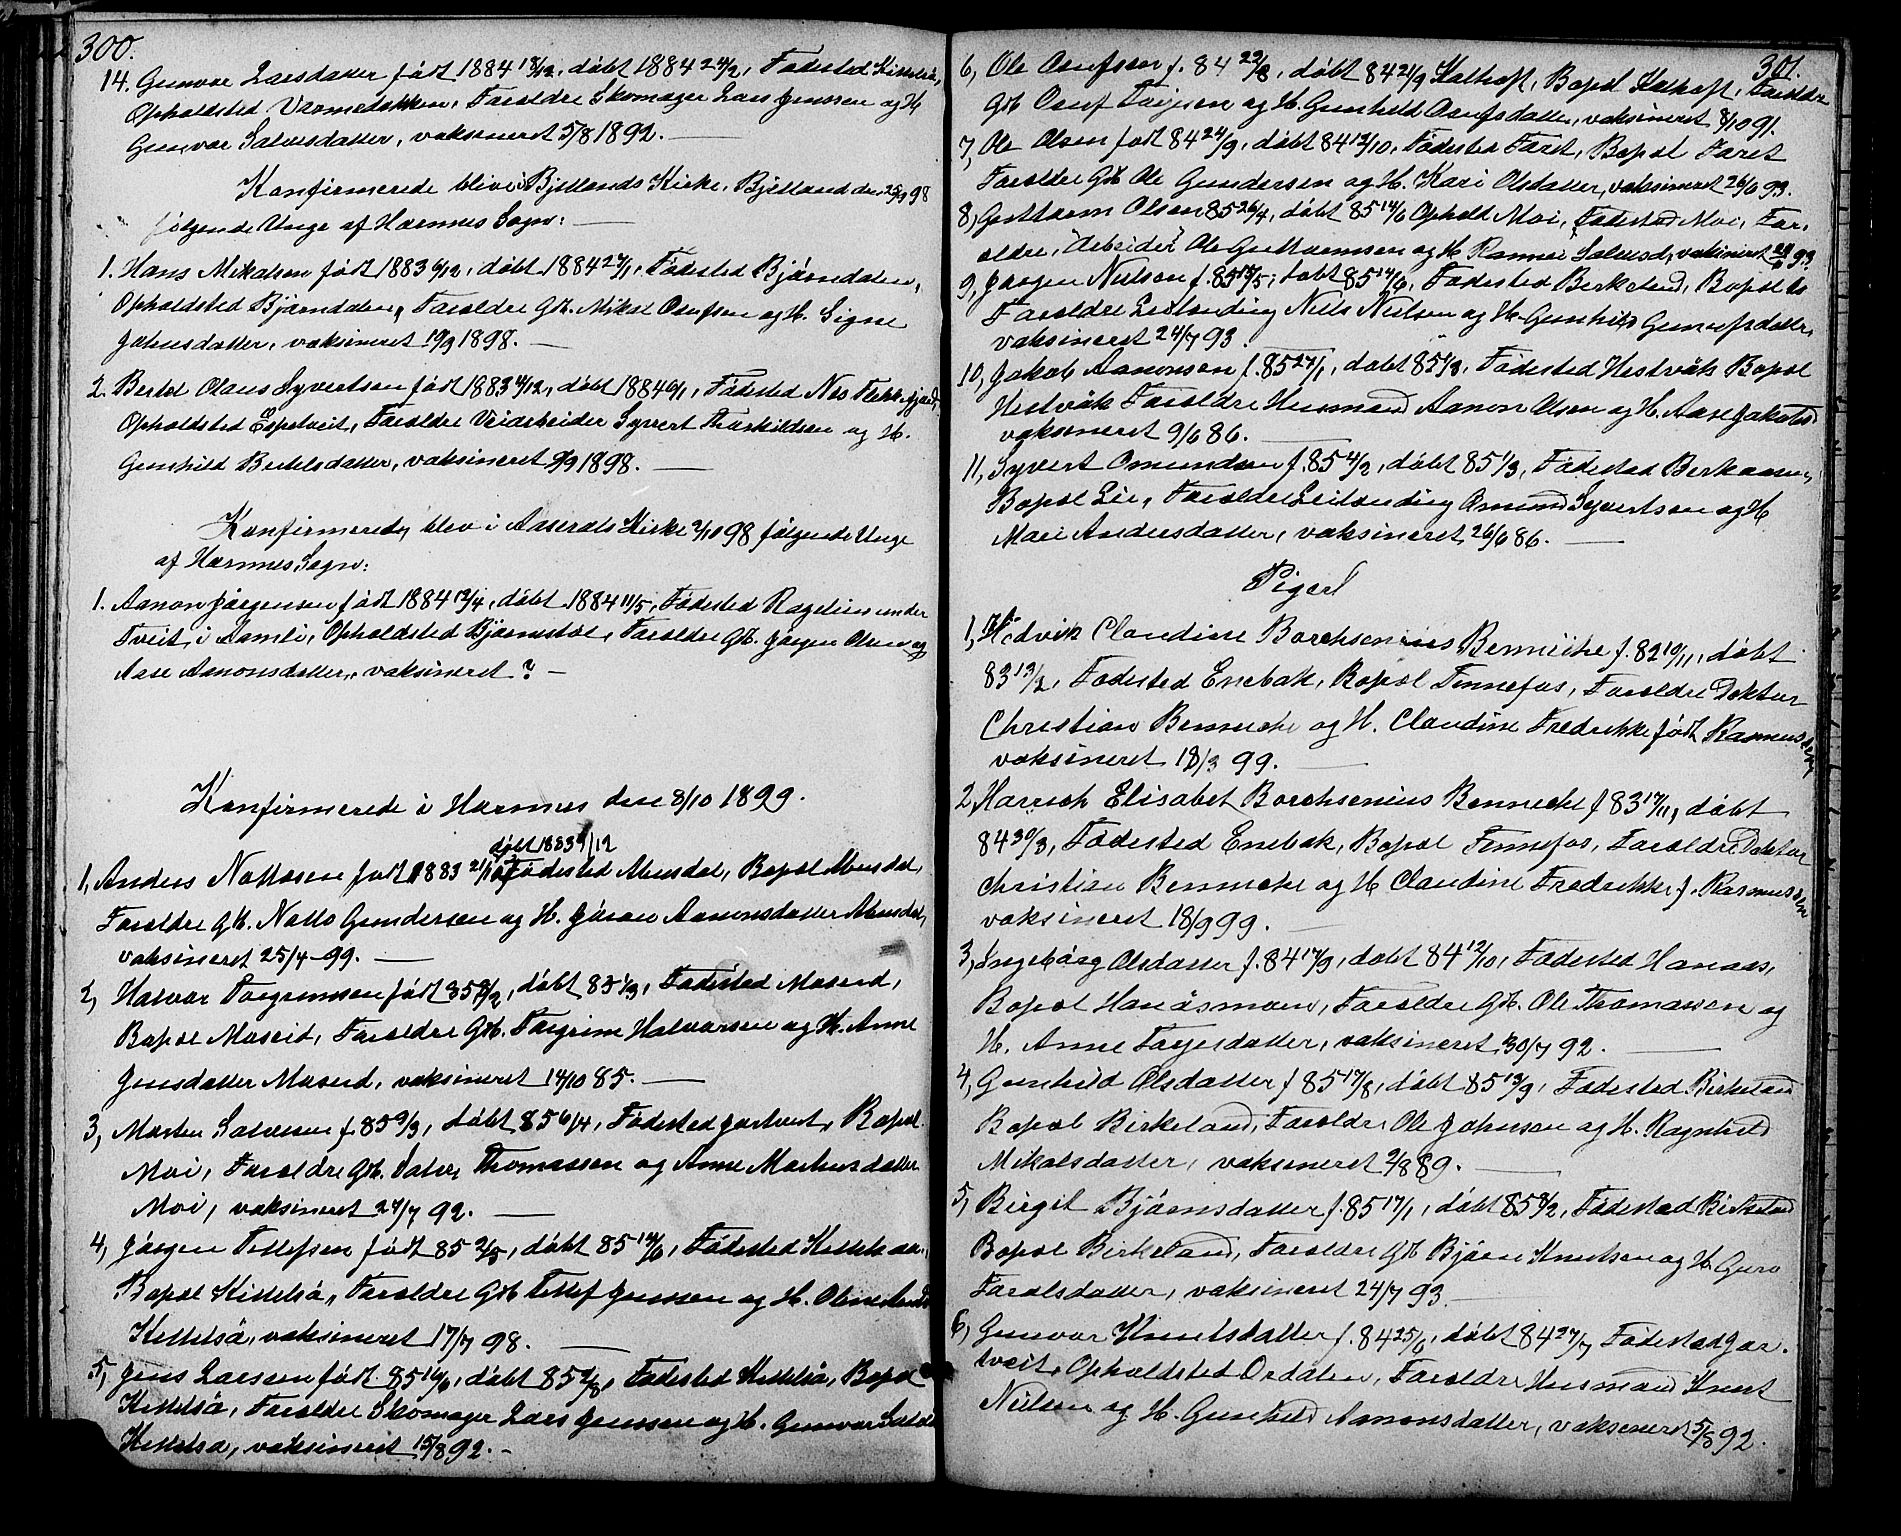 300.
14. Gunvor Larsdatter født 1884 18/12, døbt 1884 24/2, Fødested Kittelsø,
Opholdsted Varmedokken, Forældre Skomager Lars Jenssen og H.
Gunvor Salvesdatter, vaksineret 5/8 1892. —
Konfirmerede blive i Bjellands Kirke, Bjelland den 25/9 98
følgende Unge af Hornnes Sogn: —
1. Hans Mikalsen født 1883 6/12, døbt 1884 27/1, Fødested Bjørndalen,
Opholdsted Bjørndalen, Forældre Gb. Mikal Osufsen og H. Signe
Johnsdatter, vaksineret 19/9 1898. —
2. Bertel Olaus Syvertsen født 1883 11/12, døbt 1884 6/1, Fødested Nes Flekkefjord,
Opholdsted Espetveit, Forældre Veiarbeider Syvert Thorkildsen og H.
Gunhild Bertelsdatter, vaksineret 9/9 1898. —
Konfirmerede blev i Aaserals Kirke 2/10 98 følgende Unge
af Hornnes Sogn:
1. Aanon Jørgensen født 1884 12/4, døbt 1884 11/5, Fødested under
Tveit i Aamli, Opholdsted Bjørnestøl, Forældre Gb. Jørgen Olsen og
Aase Aanonsdatter, vaksineret ? —
Konfirmerede i Hornnes den 8/10 1899.
døbt 1883 9/12
1, Anders Nottosen født 1883 21/10, Fødested Abusdal, Bopæl Abusdal,
Forældre Gb. Notto Gundersen og H. Jøran Aanonsdatter Abusdal,
vaksineret 25/4-99. —
2, Halvor Torgrimsen født 85 8/2, døbt 85 1/3, Fødested Moseid,
Bopæl Moseid, Forældre Gb. Torgrim Halvorsen og H. Anne
Jensdatter Moseid, vaksineret 14/10 85. —
3, Morten Salvesen f. 85 9/3, døbt 85 6/4, Fødested Gortveit, Bopæl
Moi, Forældre Gb. Salve Thomassen og Anne Mathusdatter
Moi, vaksineret 27/7 92. —
4, Jørgen Tellefsen født 85 2/5, døbt 85 14/6, Fødested Kittelsaa,
Bopæl Kittelsø, Forældre Gb Tellef Jenssen og H. Oline
Kittelsø, vaksineret 17/7 98. —
5, Jens Larssen født 85 16/6, døbt 85 2/8, Fødested Kittelsø, Bopæl
Kittelsø, Forældre Skomager Lars Jenssen og H. Gunvor
Kittelsø, vaksineret 15/8 92. -
301.
6, Ole Osufsen f. 84 22/8, døbt 84 21/9 Kalhoft, Bopæl Kalhoft, Forældre
Gb Osuf Terjesen og H. Gunhild Osufsdatter, vaksineret 8/10 91.
7, Ole Olsen født 84 24/9, døbt 84 12/10, Fødested Faret, Bopæl Faret
Forældre Gb Ole Gundersen og H. Kari Olsdatter, vaksineret 26/6 93.
8, Guttorm Olsen 85 26/4, døbt 85 14/6 Ophold Moi, Fødested Moi, For-
ældre, "Arbeider" Ole Guttormsen og H. Salvesd, vaksineret 93.
9, Jørgen Nielsen f. 85 18/5, døbt 85 14/6, Fødested Birkeland, Bopæl do
Forældre Leilænding Niels Nielsen og H. Gunhild Gunufsdatter
vaksineret 24/7 93.
10, Jakob Aanonsen f. 85 27/1, døbt 85 1/3, Fødested Hestvåk Bopæl
Hestvåk Forældre Husmand Aanon Olsen og H. Aase Jakobsd
vaksineret 9/6 86. —
11, Syvert Omundsen f. 85 4/2, døbt 85 1/3, Fødested Berkaasen,
Bopæl Lie, Forældre Leilænding Omund Syvertsen og H
Mari Andersdatter, vaksineret 26/6 86. —
Piger
1, Hedvik Claudine Borchsenius Bennecke f. 82 19/11, døbt
83 13/2, Fødested Enebak, Bopæl Fennefos, Forældre Doktor
Christian Bennecke og H. Claudine Fredrikke født Rasmussen
vaksineret 18/9 99. —
2, Elisabet Borchsenius Bennecke f 83 17/11, døbt
84 30/3, Fødested Enebak, Bopæl Fennefos, Forældre Doktor
Christian Bennecke og H Claudine Fredrikke f. Rasmussen
vaksineret 18/9 99. —
3, Ingebørg Olsdatter f. 84 17/9, døbt 84 12/10, Fødested Hanaas,
Bopæl Hanåsmoen, Forældre Gb. Ole Thomassen og
H. Anne Torjusdatter, vaksineret 30/7 92. —
4, Gunhild Olsdatter f 85 17/8, døbt 85 13/9, Fødested Birkeland
Bopæl Birkeland, Forældre Ole Johnsen og H. Ragnhild
Mikalsdatter, vaksineret 2/8 89. —
5, Birgit Bjørnsdatter f. 85 17/1, døbt 85 8/2, Fødested Birkeland
Bopæl Birkeland, Forældre Gb Bjørn Knutsen og H. Guro
Taralsdatter, vaksineret 24/7 93.
6, Gunvor Knutsdatter f. 84 25/6, døbt 84 27/7 Fødested Gor-
tveit, Opholdsted Ordalen, Forældre Husmand Knut
Nielsen og H. Gunhild Aanonsdatter, vaksineret 5/8 92.